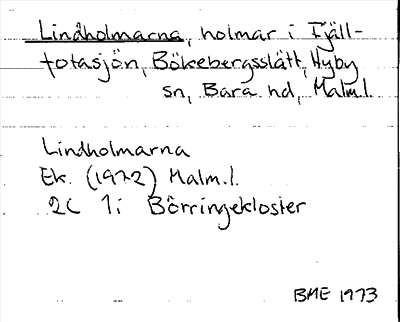 Lindholmarna, holmar i Fjäll-
fotasjön, Bökebergsslätt, Hyby
sn, Bara hd, Malm.l.
Lindholmarna
Ek. (1972) Malm.l.
2C 1i Börringekloster
BME 1973